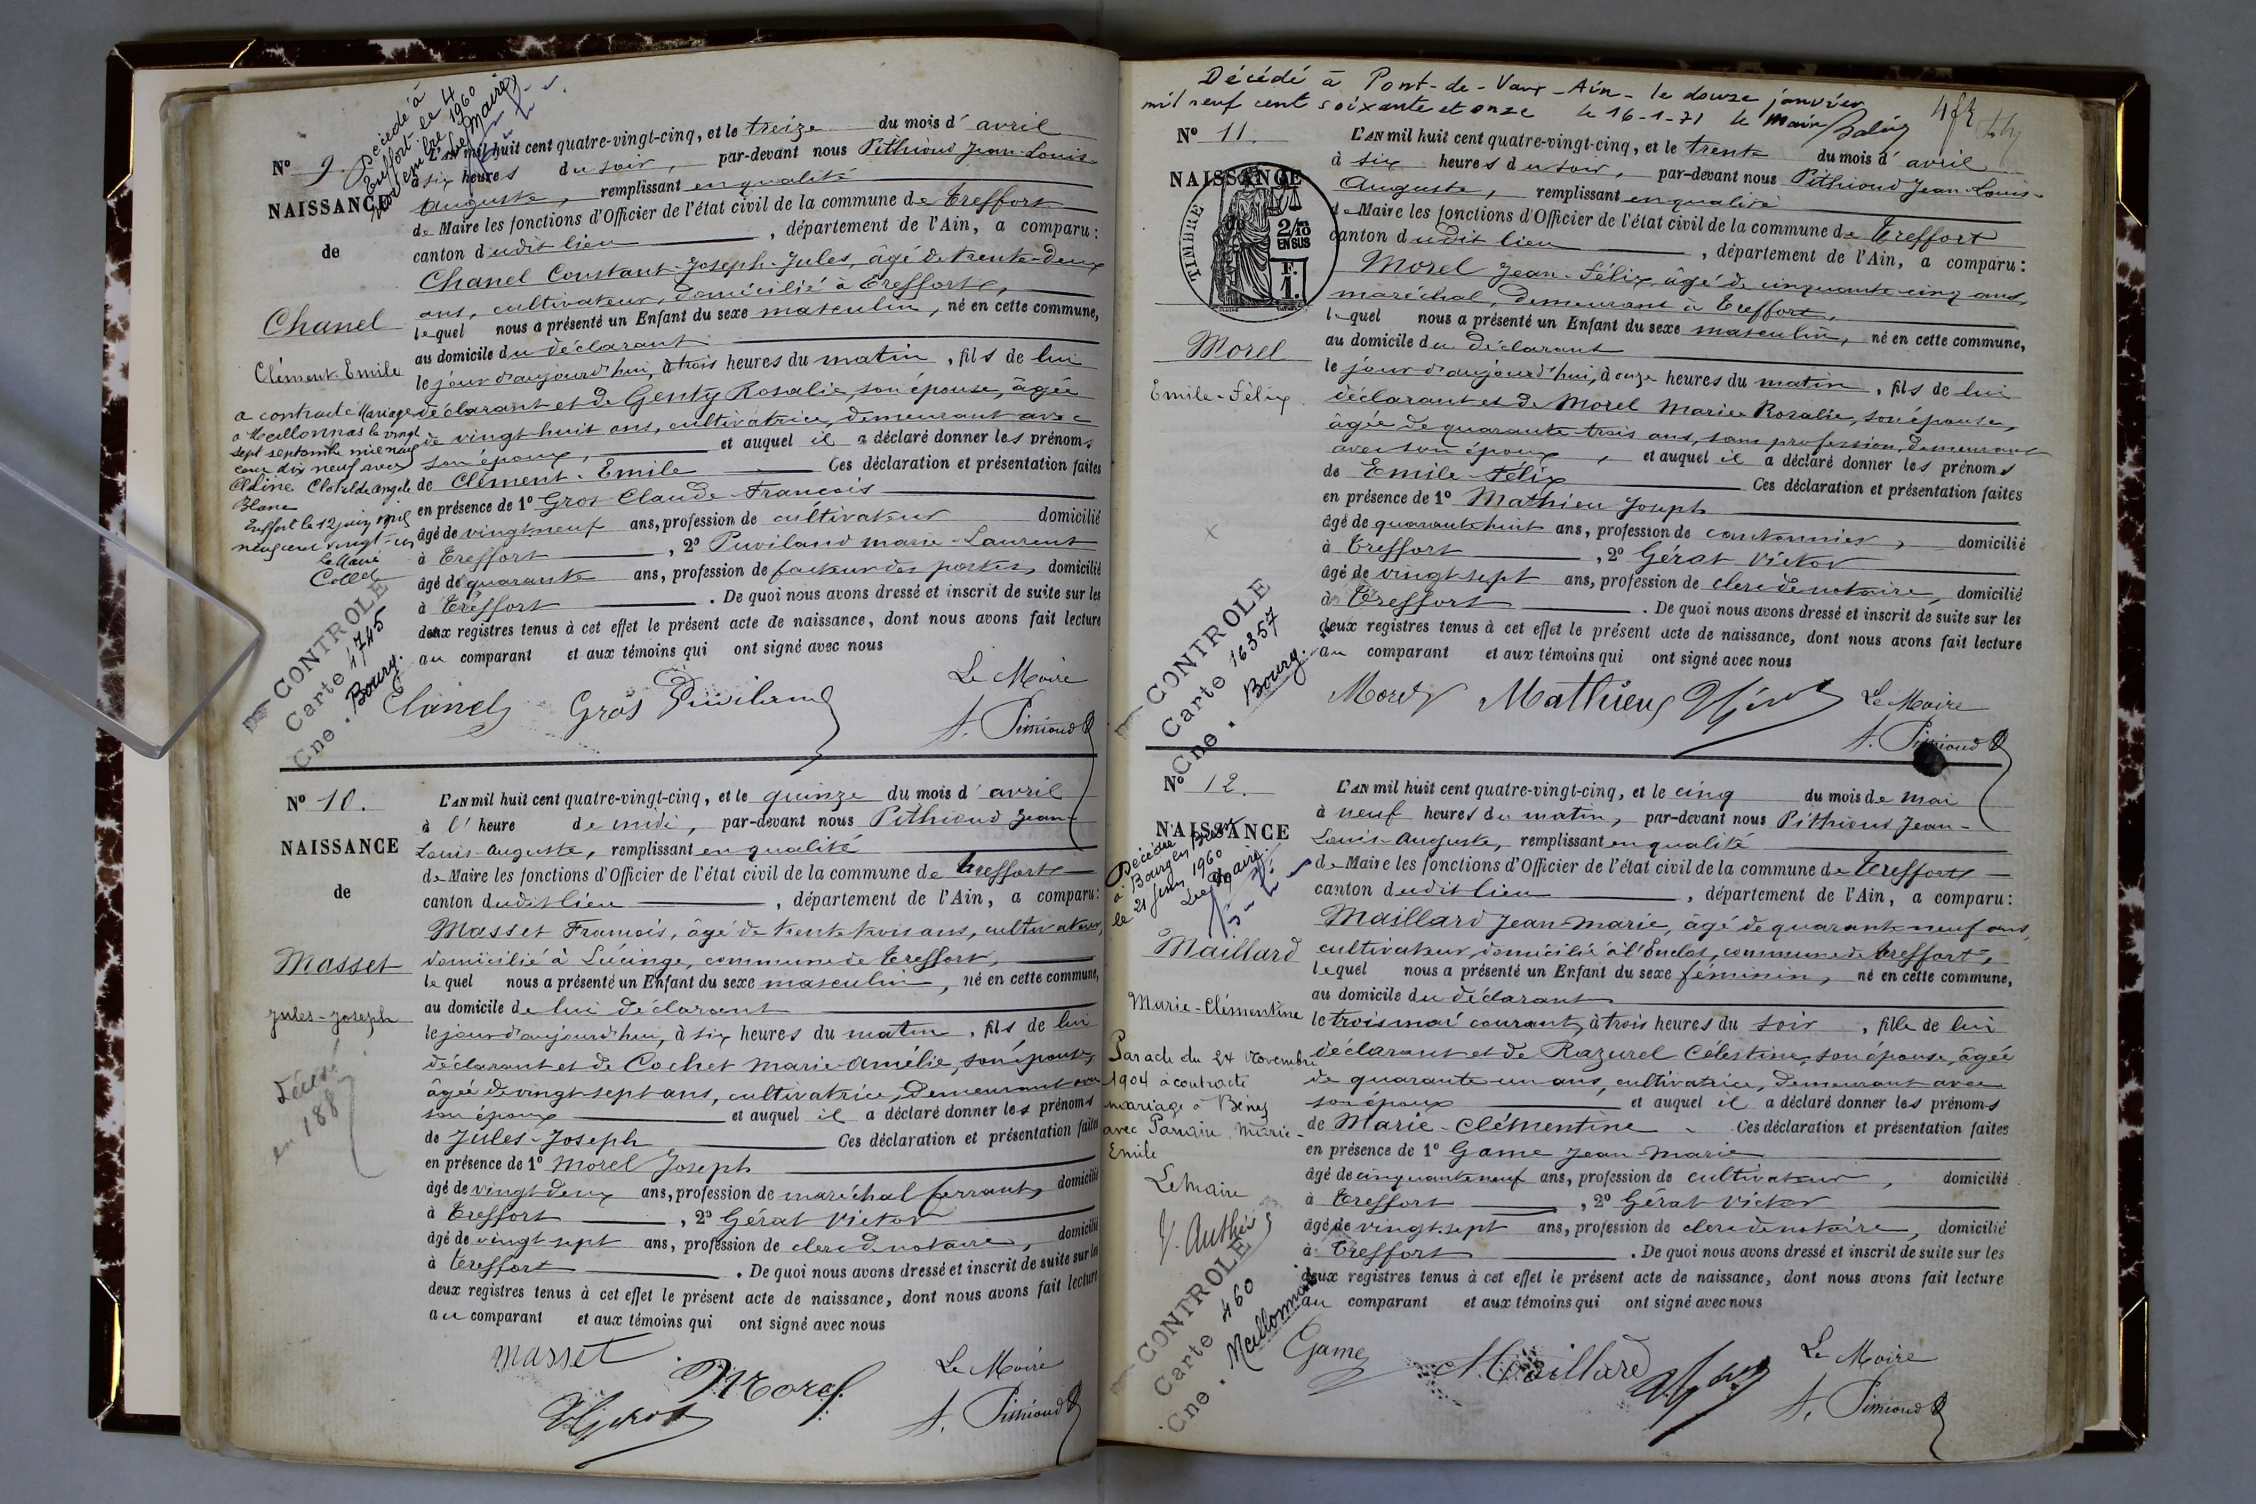 Décédé à
Treffort le 4
1960
le Maire
N° 9.
NAISSANCE
de
Chanel
Clément-Emile
a contracté Mariage
à Meillonnas le vingt
sept septembre mil neuf
cent dix neuf avec
Clotilde Angèle
Blanc
Treffort le 12 juin mil
neuf cent vingt-un
le Maire
Collet
CONTROLE
Carte 1745
Cne. Bourg.
L'AN mil huit cent quatre-vingt-cinq, et le treize du mois d'avril
à six heures du soir, par-devant nous Pithioud Jean-Louis-
Auguste, remplissant en qualité
de Maire les fonctions d'Officier de l'état civil de la commune de Treffort
canton dudit lieu, département de l'Ain, a comparu:
Chanel Constant-Joseph-Jules, âgé de trente-deux
ans, cultivateur, domicilié à Treffort,
lequel nous a présenté un Enfant du sexe masculin, né en cette commune,
au domicile du déclarant
le jour d'aujourd'hui, à trois heures du matin, fils de lui
déclarant et de Genty Rosalie, son épouse, âgée
de vingt-huit ans, cultivatrice, demeurant avec
son époux, et auquel il a déclaré donner les prénoms
de Clément-Emile Ces déclaration et présentation faites
en présence de 1° Gros Claude-François
âgé de vingt neuf ans, profession de cultivateur domicilié
à Treffort, 2° Puviland Marie-Laurent
âgé de quarante ans, profession de facteur des postes, domicilié
à Treffort. De quoi nous avons dressé et inscrit de suite sur les
deux registres tenus à cet effet le présent acte de naissance, dont nous avons fait lecture
au comparant et aux témoins qui ont signé avec nous
Chanel Gros Puviland Le Maire
A. Pithioud
N° 10.
NAISSANCE
de
Masset
Jules-Joseph
décédé
en 188
L'AN mil huit cent quatre-vingt-cinq, et le quinze du mois d'avril
à l'heure de midi, par-devant nous Pithioud Jean-
Louis-Auguste, remplissant en qualité
de Maire les fonctions d'Officier de l'état civil de la commune de Treffort
canton dudit lieu, département de l'Ain, a comparu:
Masset François, âgé de trente trois ans, cultivateur,
domicilié à Lucinge, commune de Treffort,
lequel nous a présenté un Enfant du sexe masculin, né en cette commune,
au domicile de lui déclarant
le jour d'aujourd'hui, à six heures du matin, fils de lui
déclarant et de Cochet Marie-Amélie, son épouse,
âgée de vingt-sept ans, cultivatrice, demeurant avec
son époux et auquel il a déclaré donner les prénoms
de Jules-Joseph Ces déclaration et présentation faites
en présence de 1° Morel Joseph
âgé de vingt deux ans, profession de maréchal ferrant, domicilié
à Treffort, 2° Gérat Victor
âgé de vingt sept ans, profession de clerc de notaire, domicilié
à Treffort. De quoi nous avons dressé et inscrit de suite sur les
deux registres tenus à cet effet le présent acte de naissance, dont nous avons fait lecture
au comparant et aux témoins qui ont signé avec nous
Masset Morel Le Maire
V Gérat A. Pithioud
Décédé à Pont-de-Vaux-Ain- le douze janvier
mil neuf cent soixante et onze le 16-1-71 le Maire
N° 11.
NAISSANCE
de
TIMBRE
2/10
EN SUS
F.
1.
Morel
Emile-Félix
CONTROLE
Carte 16357
Cne. Bourg.
L'AN mil huit cent quatre-vingt-cinq, et le trente du mois d'avril
à six heures du soir, par-devant nous Pithioud Jean-Louis-
Auguste, remplissant en qualité
de Maire les fonctions d'Officier de l'état civil de la commune de Treffort
canton dudit lieu, département de l'Ain, a comparu:
Morel Jean-Félix, âgé de cinquante cinq ans,
maréchal, demeurant à Treffort,
lequel nous a présenté un Enfant du sexe masculin, né en cette commune,
au domicile du déclarant
le jour d'aujourd'hui, à onze heures du matin, fils de lui
déclarant et de Morel Marie Rosalie, son épouse,
âgée de quarante trois ans, sans profession, demeurant
avec son époux, et auquel il a déclaré donner les prénoms
de Emile-Félix Ces déclaration et présentation faites
en présence de 1° Mathieu Joseph
âgé de quarante huit ans, profession de cantonnier, domicilié
à Treffort, 2° Gérat Victor
âgé de vingt sept ans, profession de clerc de notaire, domicilié
à Treffort. De quoi nous avons dressé et inscrit de suite sur les
deux registres tenus à cet effet le présent acte de naissance, dont nous avons fait lecture
au comparant et aux témoins qui ont signé avec nous
Morel Mathieu V Gérat Le Maire
A. Pithioud
N° 12.
NAISSANCE
Décédée
à Bourg en Bresse
le 21 1960
Le Maire.
Maillard
Marie-Clémentine
Par acte du 24 Novembre
1904 a contracté
mariage à Bény
avec Marie-
Emile
Le Maire
CONTROLE
Carte 460
Cne. Meillonnas
L'AN mil huit cent quatre-vingt-cinq, et le cinq du mois de mai
à neuf heures du matin, par-devant nous Pithioud Jean-
Louis-Auguste, remplissant en qualité
de Maire les fonctions d'Officier de l'état civil de la commune de Treffort
canton dudit lieu, département de l'Ain, a comparu:
Maillard Jean-Marie, âgé de quarante neuf ans,
cultivateur, domicilié à l'Enclos, commune de Treffort,
lequel nous a présenté un Enfant du sexe féminin, né en cette commune,
au domicile du déclarant
le trois mai courant, à trois heures du soir, fille de lui
déclarant et de Razurel Célestine, son épouse, âgée
de quarante un ans, cultivatrice, demeurant avec
son époux et auquel il a déclaré donner les prénoms
de Marie-Clémentine Ces déclaration et présentation faites
en présence de 1° Game Jean-Marie
âgé de cinquante neuf ans, profession de cultivateur, domicilié
à Treffort, 2° Gérat Victor
âgé de vingt-sept ans, profession de clerc de notaire, domicilié
à Treffort. De quoi nous avons dressé et inscrit de suite sur les
deux registres tenus à cet effet le présent acte de naissance, dont nous avons fait lecture
au comparant et aux témoins qui ont signé avec nous
Game Maillard Le Maire
A. Pithioud